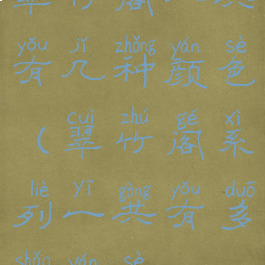 yǒu jǐ zhǒng yán sè
有几种颜色
cuì zhú gé xì
（翠竹阁系
liè yī gòng yǒu duō
列一共有多
shǎo yán sè